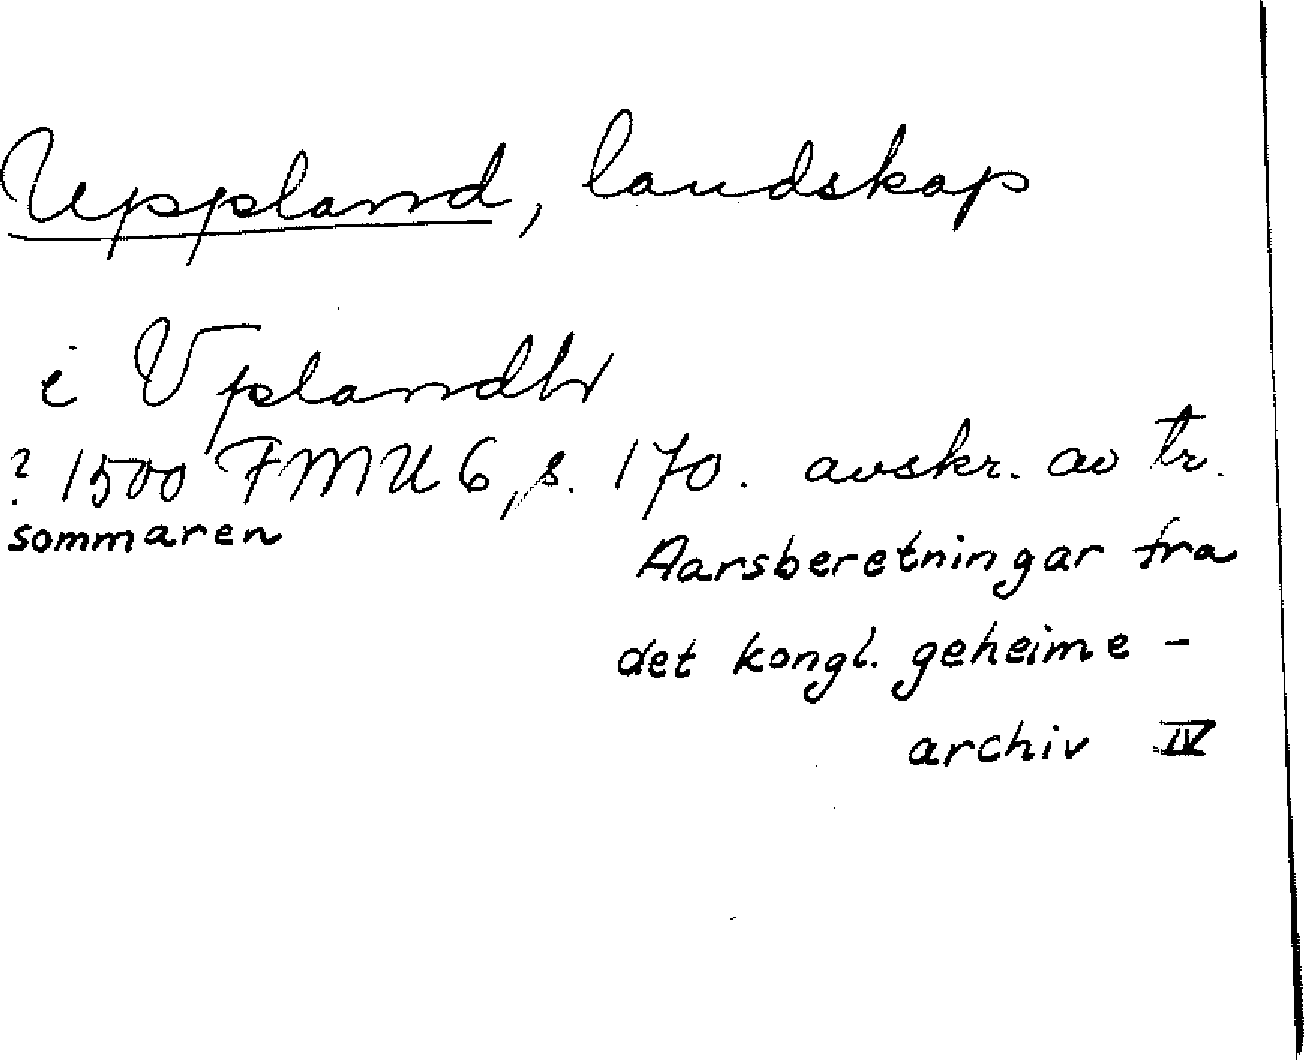 Uppland, landskap
i Vplandh
? 1500 FMU 6, s. 170. avskr. av tr.
sommaren
Aarsberetningar fra
det kongl. geheime-
archiv IV